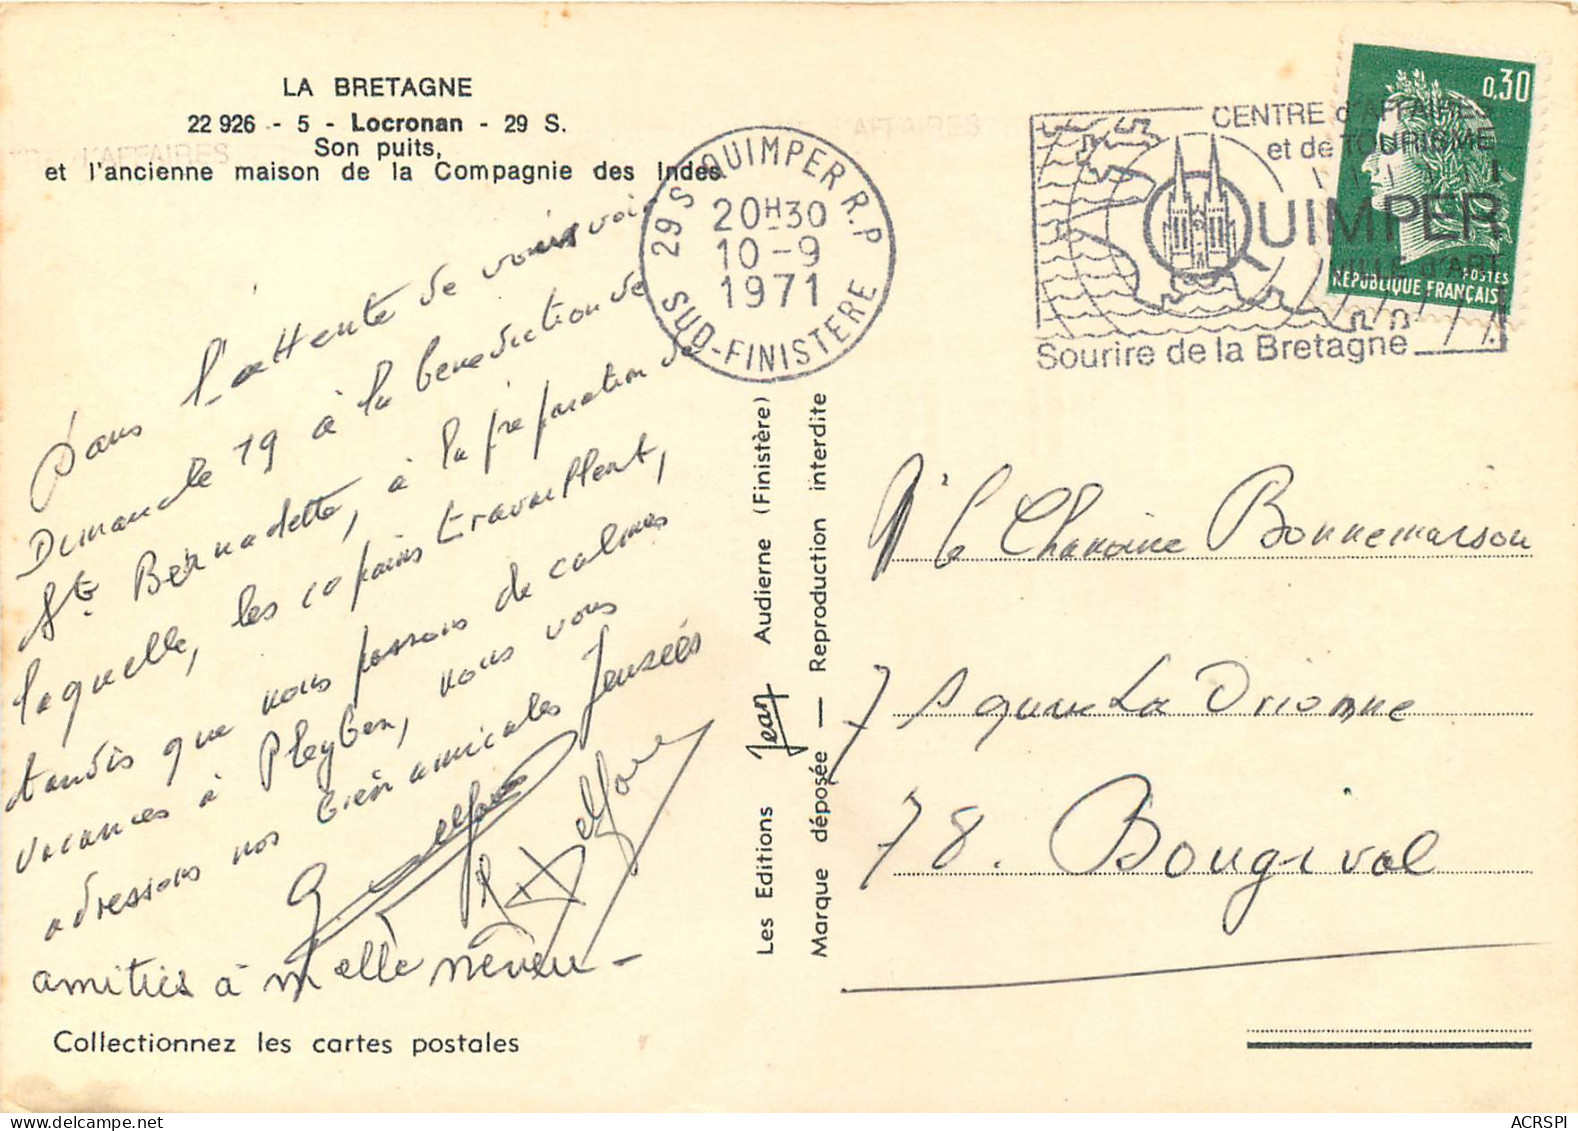 LA BRETAGNE
22 926 - 5 - Locronan - 29 S.
Son puits,
et l'ancienne maison de la Compagnie des Indes.
Dans l'attente de vous voir
Dimanche 19 à la benediction de
Ste Bernadette, à la préparation de
laquelle, les copains travaillent,
tandis que nous passons de calmes
vacances à Pleyben, nous vous
adressons nos bien amicales pensées
amitiés à Melle neveu -
Collectionnez les cartes postales
Les Editions Jean Audierne (Finistère)
Marque déposée — Reproduction interdite
29 S QUIMPER R.P
20H30
10 - 9
1971
SUD-FINISTERE
CENTRE d'AFFAIRES
et de TOURISME
QUIMPER
VILLE d'ART
Sourire de la Bretagne
0,30
POSTES
REPUBLIQUE FRANÇAISE
Mr le Chanoine Bonnemaison
7 Square La Drionne
78. Bougival
ACRSPI